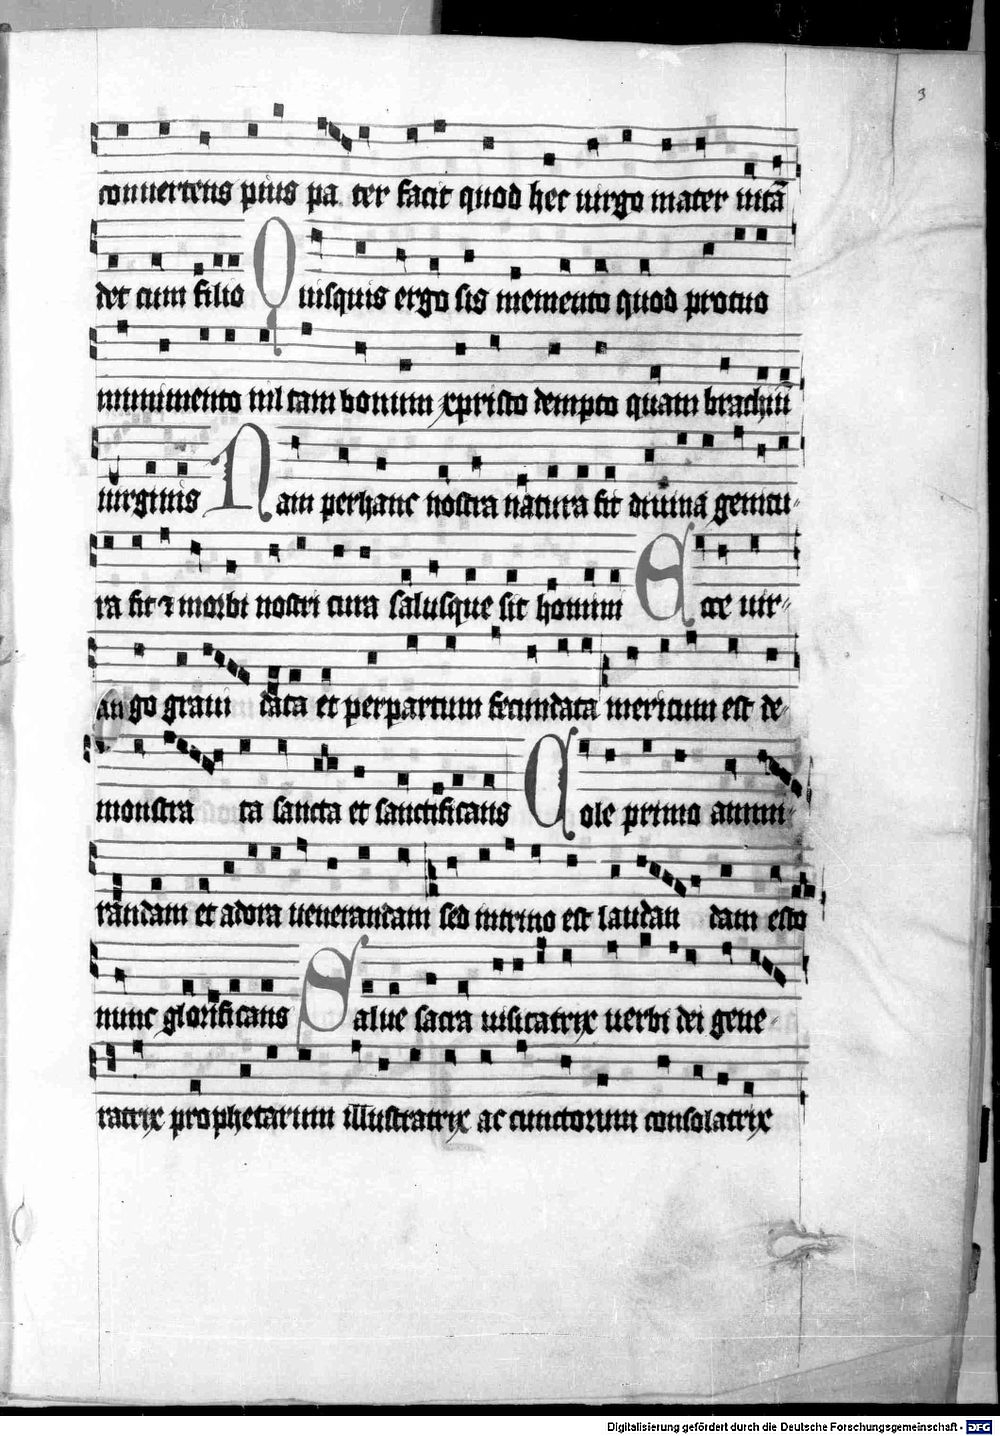 3
conuertens pius pa ter facit quod hec uirgo mater uitā
det cum filio Quisquis ergo sis memento quod pro tuo
munimento nil tam bonum xpristo dempto quam brachiū
uirginis Nam per hanc nostra natura fit diuina genitu-
ra fit ⁊ morbi nostri cura salusque sit homini Ecce uir-
go graui data et per partum fecundata meritum est de-
monstra ta sancta et sanctificans Cole primo ammi-
randam et adora uenerandam sed in trino est laudan dam esto
nunc glorificans Salue sacra uisitatrix uerbi dei gene-
ratrix prophetarum illustratrix ac cunctorum consolatrix
Digitalisierung gefördert durch die Deutsche Forschungsgemeinschaft - DFG